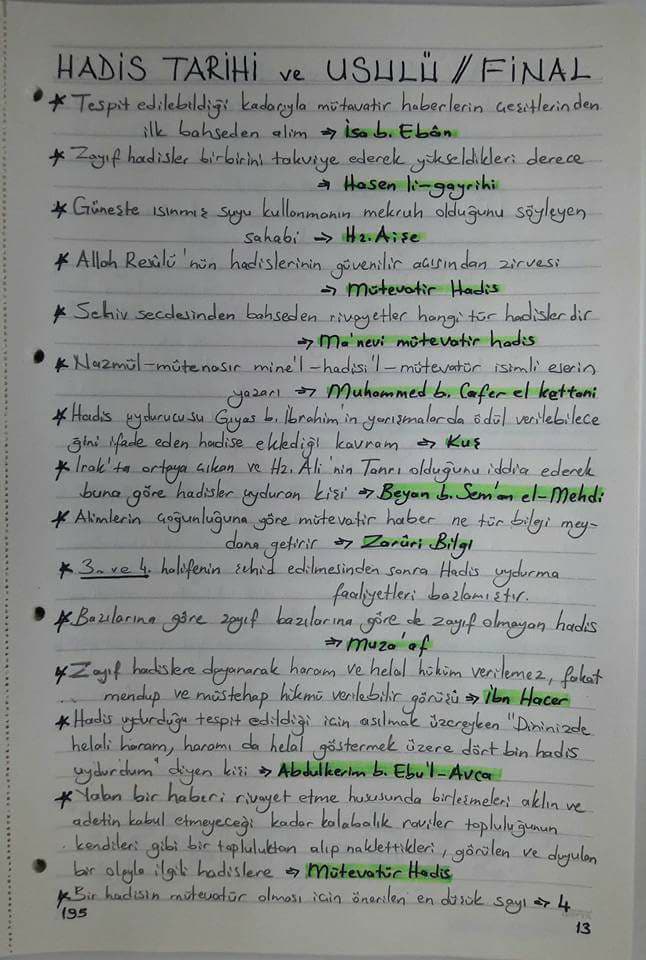 HADİS TARİHİ ve USULÜ // FİNAL
* Tespit edilebildiği kadarıyla mütavatir haberlerin çeşitlerinden
ilk bahseden alim → İsa b. Ebân
* Zayıf hadisler birbirini takviye ederek yükseldikleri derece
→ Hasen li-gayrihi
* Güneşte ısınmış suyu kullanmanın mekruh olduğunu söyleyen
sahabi → Hz. Aişe
* Allah Resûlü'nün hadislerinin güvenilir açısından zirvesi
→ Mütevatir Hadis
* Sehiv secdesinden bahseden rivayetler hangi tür hadislerdir
→ Ma'nevi mütevatir hadis
* Nazmül-mütenasır mine'l-hadisi'l-mütevatür isimli eserin
yazarı → Muhammed b. Cafer el kettani
* Hadis uydurucusu Gıyas b. İbrahim'in yarışmalarda ödül verilebilece
ğini ifade eden hadise eklediği kavram → Kuş
* Irak'ta ortaya çıkan ve Hz. Ali'nin Tanrı olduğunu iddia ederek
buna göre hadisler uyduran kişi → Beyan b. Sem'an el-Mehdi
* Alimlerin çoğunluğuna göre mütevatir haber ne tür bilgi mey-
dana getirir → Zarûri Bilgi
* 3. ve 4. halifenin şehid edilmesinden sonra Hadis uydurma
faaliyetleri başlamıştır.
* Bazılarına göre zayıf bazılarına göre de zayıf olmayan hadis
→ Muza'af
* Zayıf hadislere dayanarak haram ve helal hüküm verilemez, fakat
mendup ve müstehap hükmü verilebilir görüşü → İbn Hacer
* Hadis uydurduğu tespit edildiği için asılmak üzereyken "Dininizde
helali haram, haramı da helal göstermek üzere dört bin hadis
uydurdum" diyen kişi → Abdulkerim b. Ebu'l-Avca
* Yalan bir haberi rivayet etme hususunda birleşmeleri aklın ve
adetin kabul etmeyeceği kadar kalabalık raviler topluluğunun
kendileri gibi bir topluluktan alıp naklettikleri, görülen ve duyulan
bir olayla ilgili hadislere → Mütevatür Hadis
* Bir hadisin mütevatür olması için önerilen en düşük sayı → 4
195
13